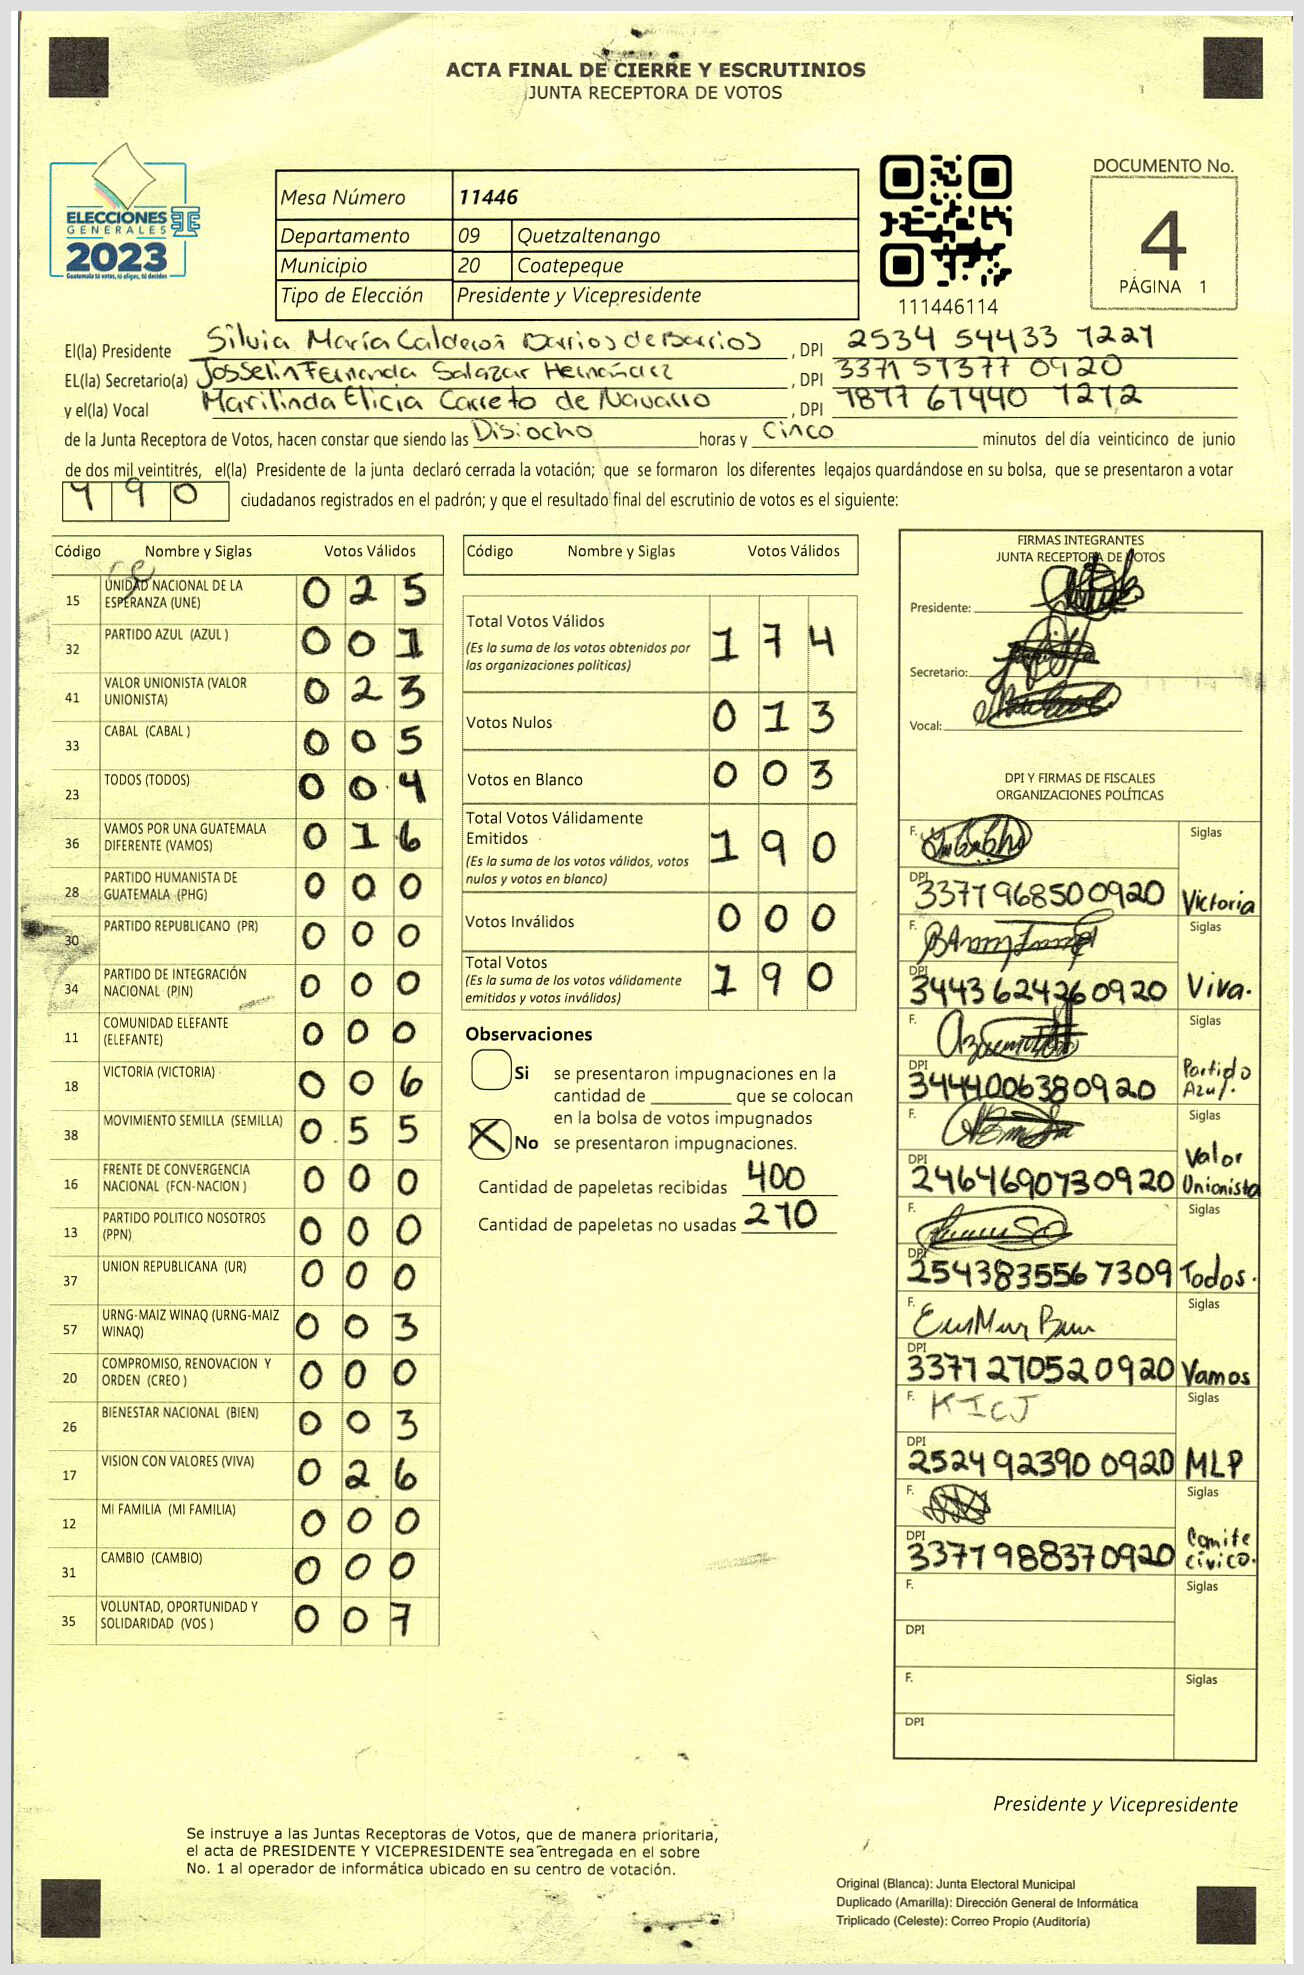 ACTA FINAL DE CIERRE Y ESCRUTINIOS
JUNTA RECEPTORA DE VOTOS
ELECCIONES
GENERALES
2023
Guatemala tú votas, tú eliges, tú decides
Mesa Número 11446
Departamento 09 Quetzaltenango
Municipio 20 Coatepeque
Tipo de Elección Presidente y Vicepresidente
111446114
DOCUMENTO No.
4
PÁGINA 1
El(la) Presidente Silvia María Calderón Barrios de Barrios , DPI 2534 54433 1221
EL(la) Secretario(a) Josselin Fernanda Salazar Hernández , DPI 3371 51377 0920
y el(la) Vocal Marilinda Elicia Carreto de Navarro , DPI 1877 61440 1212
de la Junta Receptora de Votos, hacen constar que siendo las Disiocho horas y Cinco minutos del día veinticinco de junio
de dos mil veintitrés, el(la) Presidente de la junta declaró cerrada la votación; que se formaron los diferentes legajos quardándose en su bolsa, que se presentaron a votar
190 ciudadanos registrados en el padrón; y que el resultado final del escrutinio de votos es el siguiente:
Código Nombre y Siglas Votos Válidos
15 UNIDAD NACIONAL DE LA ESPERANZA (UNE) 025
32 PARTIDO AZUL (AZUL ) 001
41 VALOR UNIONISTA (VALOR UNIONISTA) 023
33 CABAL (CABAL ) 005
23 TODOS (TODOS) 004
36 VAMOS POR UNA GUATEMALA DIFERENTE (VAMOS) 016
28 PARTIDO HUMANISTA DE GUATEMALA (PHG) 000
30 PARTIDO REPUBLICANO (PR) 000
34 PARTIDO DE INTEGRACIÓN NACIONAL (PIN) 000
11 COMUNIDAD ELEFANTE (ELEFANTE) 000
18 VICTORIA (VICTORIA) 006
38 MOVIMIENTO SEMILLA (SEMILLA) 055
16 FRENTE DE CONVERGENCIA NACIONAL (FCN-NACION ) 000
13 PARTIDO POLITICO NOSOTROS (PPN) 000
37 UNION REPUBLICANA (UR) 000
57 URNG-MAIZ WINAQ (URNG-MAIZ WINAQ) 003
20 COMPROMISO, RENOVACION Y ORDEN (CREO ) 000
26 BIENESTAR NACIONAL (BIEN) 003
17 VISION CON VALORES (VIVA) 026
12 MI FAMILIA (MI FAMILIA) 000
31 CAMBIO (CAMBIO) 000
35 VOLUNTAD, OPORTUNIDAD Y SOLIDARIDAD (VOS ) 007
Código Nombre y Siglas Votos Válidos
Total Votos Válidos 174
(Es la suma de los votos obtenidos por
las organizaciones politicas)
Votos Nulos 013
Votos en Blanco 003
Total Votos Válidamente
Emitidos 190
(Es la suma de los votos válidos, votos
nulos y votos en blanco)
Votos Inválidos 000
Total Votos 190
(Es la suma de los votos válidamente
emitidos y votos inválidos)
Observaciones
Si se presentaron impugnaciones en la
cantidad de ________ que se colocan
en la bolsa de votos impugnados
X No se presentaron impugnaciones.
Cantidad de papeletas recibidas 400
Cantidad de papeletas no usadas 210
FIRMAS INTEGRANTES
JUNTA RECEPTORA DE VOTOS
Presidente:
Secretario:
Vocal:
DPI Y FIRMAS DE FISCALES
ORGANIZACIONES POLÍTICAS
F. Siglas
DPI 3371968500920 Victoria
F. Siglas
DPI 3443624260920 Viva.
F. Siglas
DPI 3444006380920 Partido Azul.
F. Siglas
DPI 2464690730920 Valor Unionista
F. Siglas
DPI 2543835567309 Todos.
F. Siglas
DPI 3371270520920 Vamos
F. KICJ Siglas
DPI 2524923900920 MLP
F. Siglas
DPI 3371988370920 Comite civico.
F. Siglas
DPI
F. Siglas
DPI
Presidente y Vicepresidente
Se instruye a las Juntas Receptoras de Votos, que de manera prioritaria,
el acta de PRESIDENTE Y VICEPRESIDENTE sea entregada en el sobre
No. 1 al operador de informática ubicado en su centro de votación.
Original (Blanca): Junta Electoral Municipal
Duplicado (Amarilla): Dirección General de Informática
Triplicado (Celeste): Correo Propio (Auditoría)